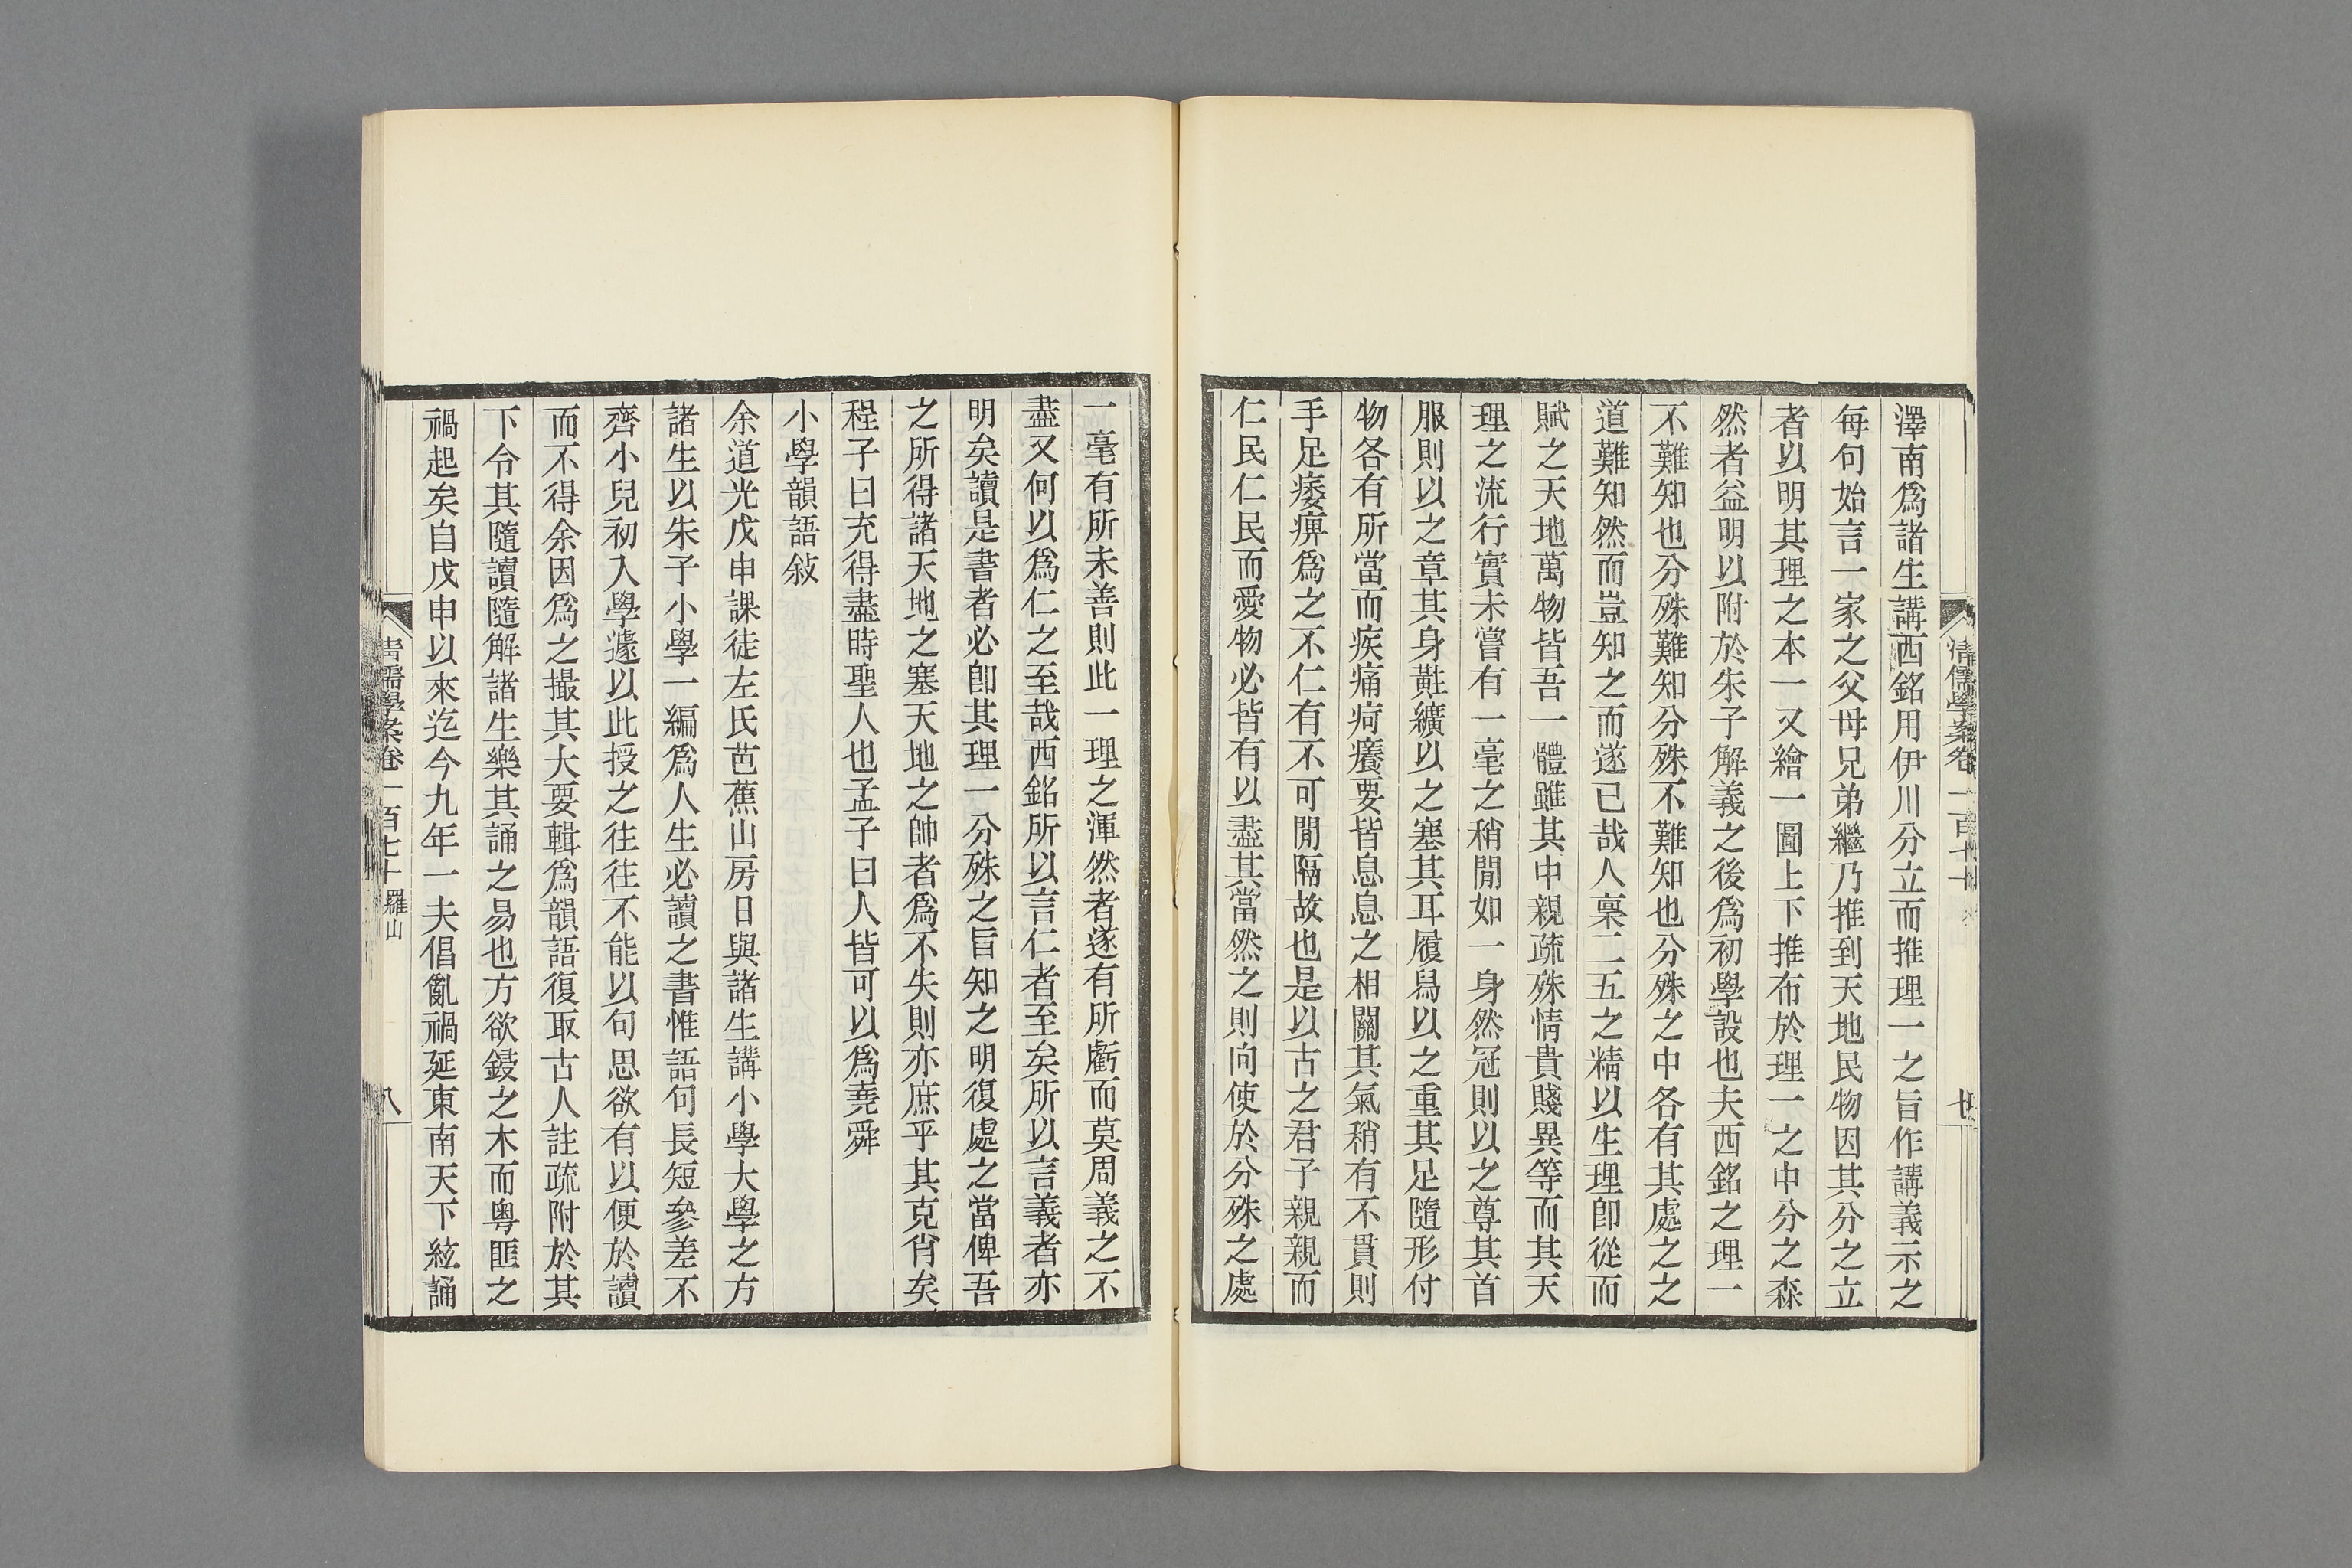 清儒學案卷一百七十
七
澤南爲諸生講西銘用伊川分立而推理一之旨作講義示之
每句始言一家之父母兄弟繼乃推到天地民物因其分之立
者以明其理之本一又繪一圖上下推布於理一之中分之森
然者益明以附於朱子解義之後爲初學設也夫西銘之理一
不難知也分殊難知分殊不難知也分殊之中各有其處之之
道難知然而豈知之而遂已哉人稟二五之精以生理卽從而
賦之天地萬物皆吾一體雖其中親疏殊情貴賤異等而其天
理之流行實未嘗有一毫之稍閒如一身然冠則以之尊其首
服則以之章其身黈纊以之塞其耳履舄以之重其足隨形付
物各有所當而疾痛疴癢要皆息息之相關其氣稍有不貫則
手足痿痹爲之不仁有不可閒隔故也是以古之君子親親而
仁民仁民而愛物必皆有以盡其當然之則向使於分殊之處
一毫有所未善則此一理之渾然者遂有所虧而莫周義之不
盡又何以爲仁之至哉西銘所以言仁者至矣所以言義者亦
明矣讀是書者必卽其理一分殊之旨知之明復處之當俾吾
之所得諸天地之塞天地之帥者爲不失則亦庶乎其克肖矣
程子曰充得盡時聖人也孟子曰人皆可以爲堯舜
小學韻語敍
余道光戊申課徒左氏芭蕉山房日與諸生講小學大學之方
諸生以朱子小學一編爲人生必讀之書惟語句長短參差不
齊小兒初入學遽以此授之往往不能以句思欲有以便於讀
而不得余因爲之撮其大要輯爲韻語復取古人註疏附於其
下令其隨讀隨解諸生樂其誦之易也方欲鋟之木而粵匪之
禍起矣自戊申以來迄今九年一夫倡亂禍延東南天下絃誦
清儒學案卷一百七十 羅山
八